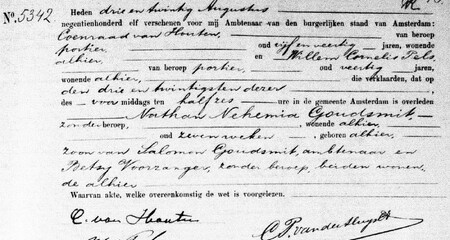 No. 5342. Heden drie en twintig Augustus
negentienhonderd elf verschenen voor mij Ambtenaar van den burgerlijken stand van Amsterdam:
Coenraad van Houten, van beroep
portier, oud vijf en veertig jaren, wonende
alhier, en Willem Cornelis Pels,
van beroep portier, oud veertig jaren,
wonende alhier, die verklaarden, dat op
den drie en twintigsten dezer
des voormiddags ten half zes ure in de gemeente Amsterdam is overleden
Nathan Nehemia Goudsmit,
zonder beroep, wonende alhier,
oud zeven weken, geboren alhier,
zoon van Salomon Goudsmit, ambtenaar en
Betsy Voorzanger, zonder beroep, beiden wonen-
de alhier
Waarvan akte, welke overeenkomstig de wet is voorgelezen.
C. van Houten